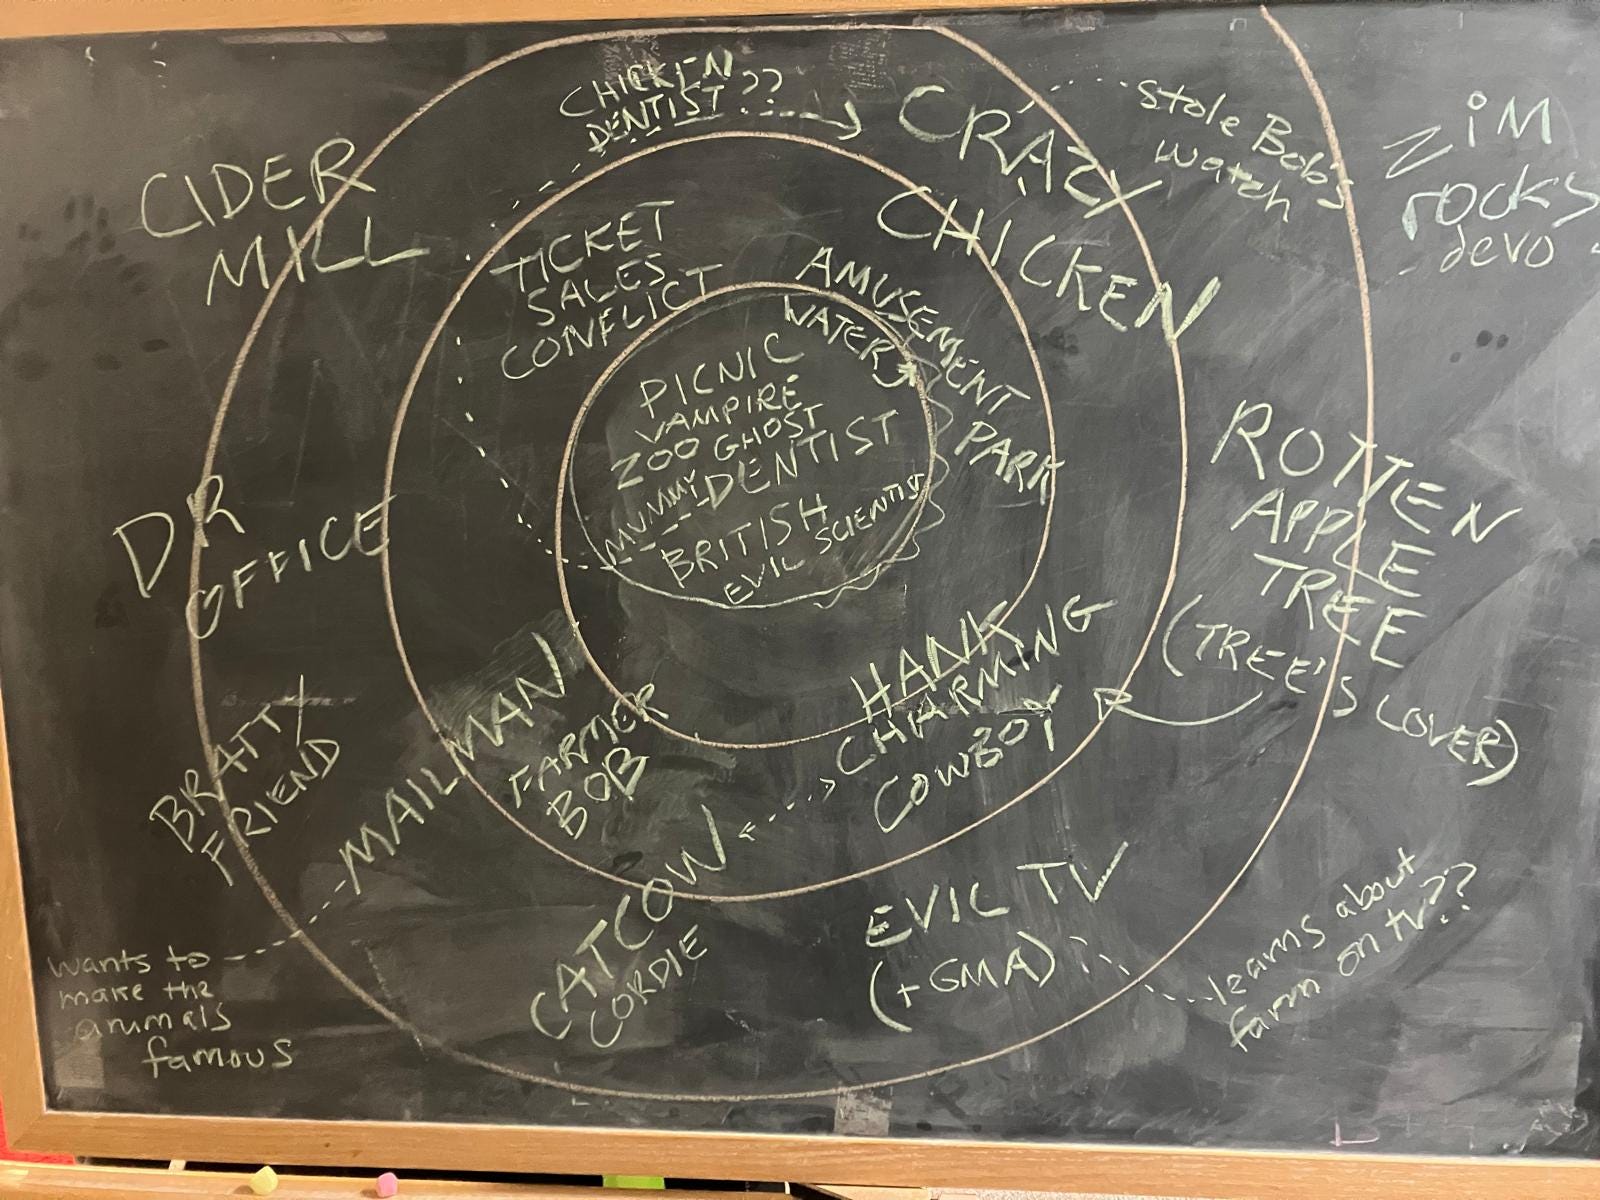 CHICKEN
DENTIST??
CRAZY
CHICKEN
stole Bob's
watch
iM
rocks
devo
CIDER
MILL
TICKET
SALES
CONFLICT
AMUSEMENT
PARK
WATER
PICNIC
VAMPIRE
ZOO GHOST
MUMMY DENTIST
BRITISH
EVIL SCIENTIST
ROTTEN
APPLE
TREE
(TREE'S LOVER)
DR
OFFICE
HANK
CHARMING
COWBOY
BRATTY
FRIEND
MAILMAN
FARMER
BOB
CATCOW
CORDIE
EVIL TV
(+GMA)
learns about
farm on tv??
wants to
make the
animals
famous